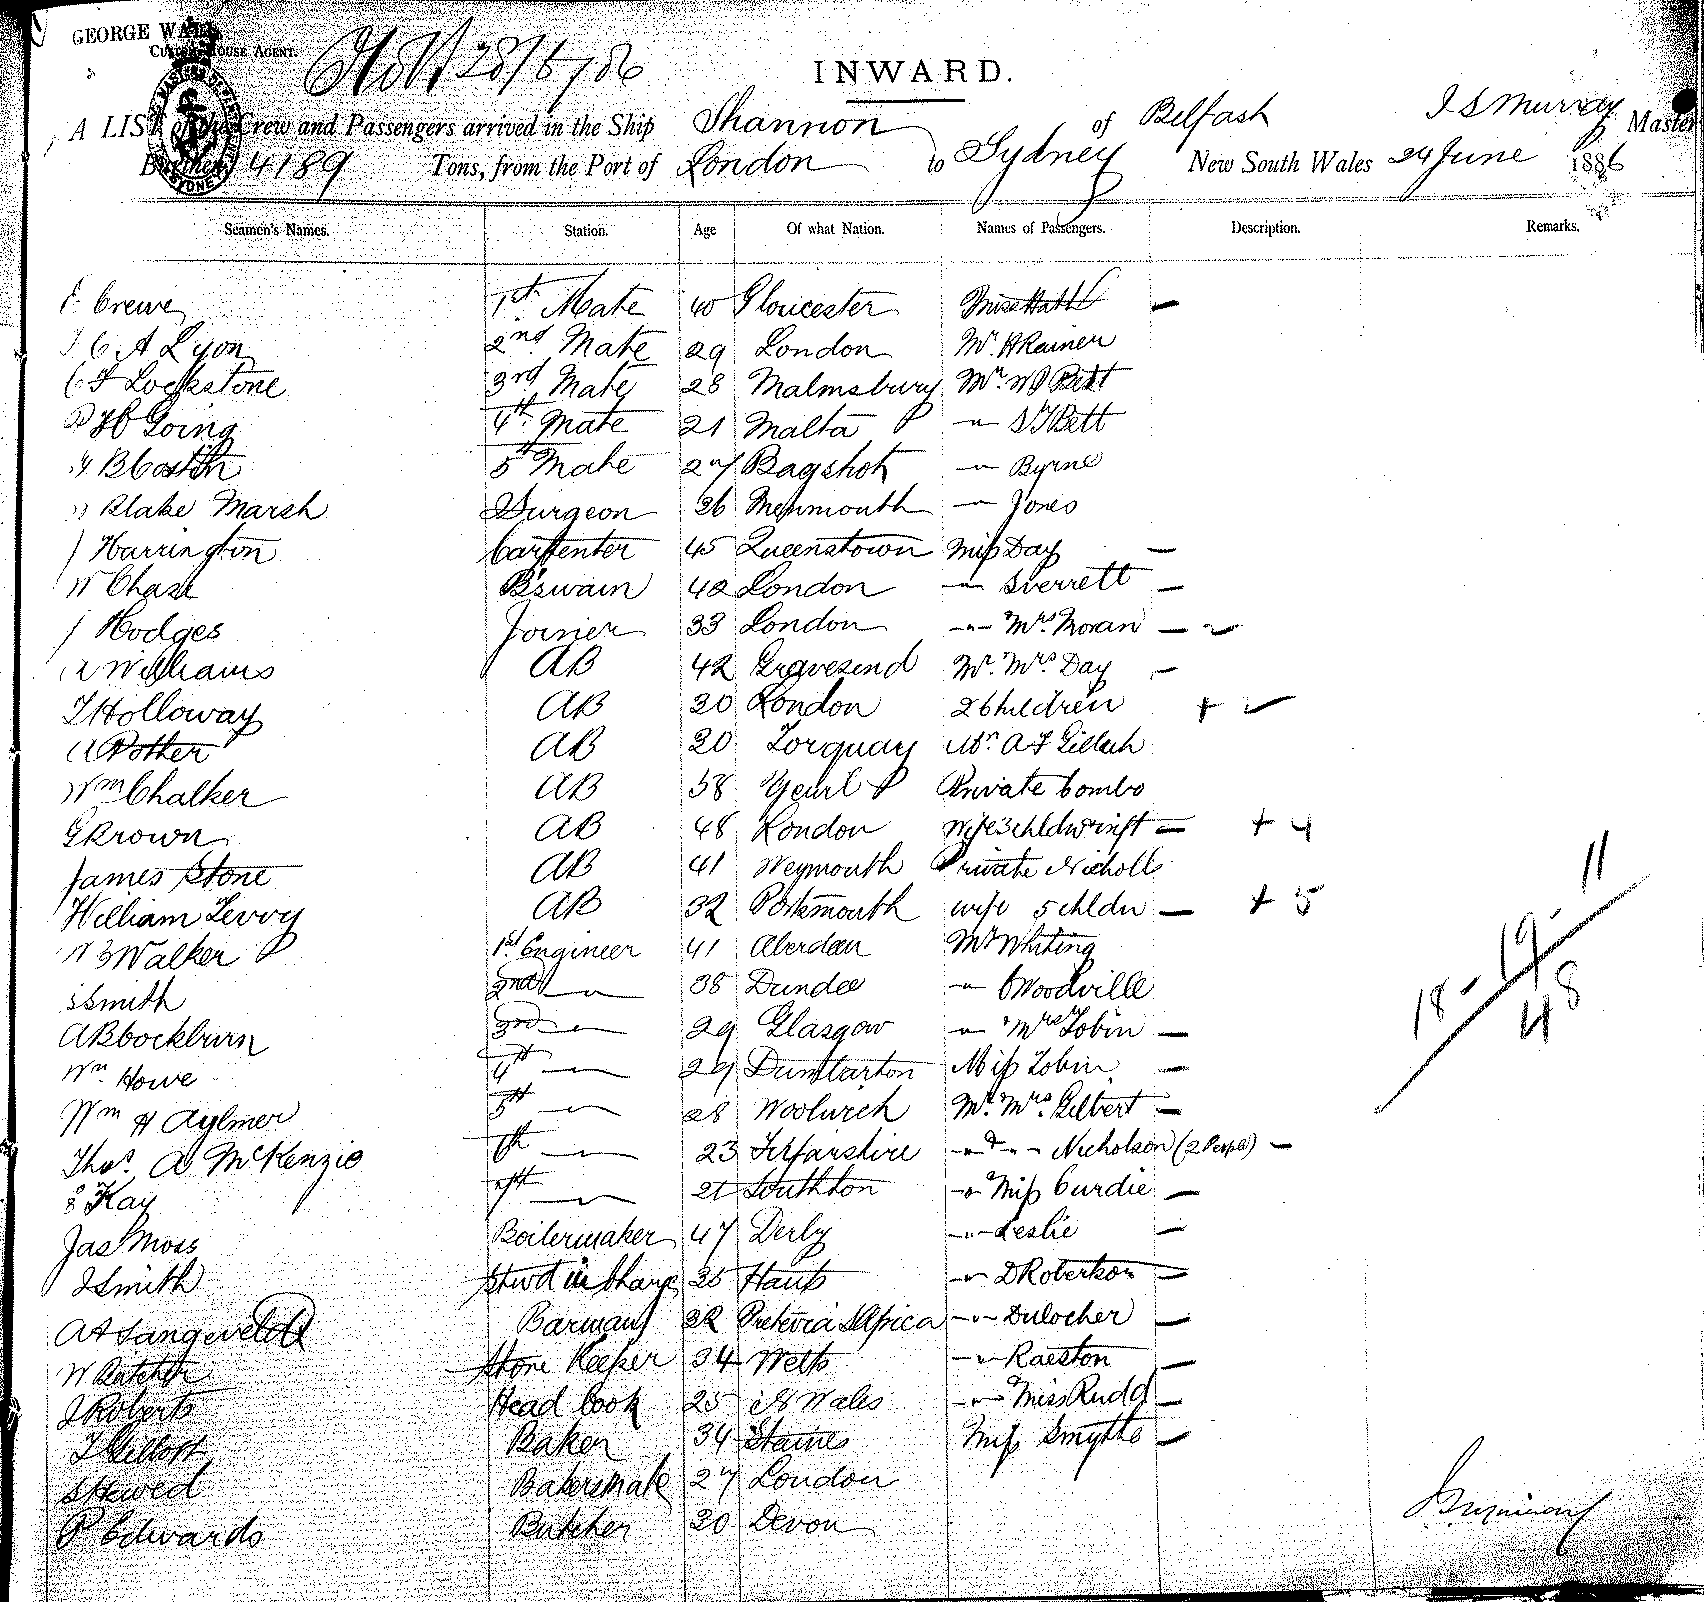 GEORGE WALL,
CUSTOM HOUSE AGENT.
28/6/86
INWARD.
A LIST of the Crew and Passengers arrived in the Ship Shannon of Belfast J S Murray Master
Burthen 4189 Tons, from the Port of London to Sydney New South Wales 24 June 1886
Seamen's Names. Station. Age Of what Nation. Names of Passengers. Description. Remarks.
Crewe 1st Mate 40 Gloucester Miss Hall —
C A Lyon 2nd Mate 29 London Mr. H Rainer
Lockstone 3rd Mate 28 Malmsbury Mr. W Bett
Going 4th Mate 21 Malta -"- S F Bett
5th Mate 27 Bagshot -"- Byrne
Blake Marsh Surgeon 26 Monmouth -"- Jones
J Harrington Carpenter 45 Queenstown Miss Day —
W Chase B'swain 42 London -"- Sverrett —
J Hodges Joiner 33 London -"- Mrs. Moran —
Williams AB 42 Gravesend Mr. Mrs Day —
T Holloway AB 20 London 2 Children +
A Potter AB 20 Torquay Mr. A F
Wm Chalker AB 58 Private Combo
G Brown AB 48 London + 4
James Stone AB 41 Weymouth Private Nicholls
William Levvy AB 32 Portsmouth wife 5 chldn — + 5
Walker 1st Engineer 41 Aberdeen Mr Whiting
Smith 2nd -"- 38 Dundee -"- C Woodville
A B Cockburn 3rd -"- 29 Glasgow -"- Mrs Tobin —
Wm. Howe 4th -"- 29 Dumbarton Miss Tobin —
Wm H Aylmer 5th -"- 28 Woolwich Mr. Mrs. Gilbert —
Thos. A McKenzie 6th -"- 23 Forfarshire -"- -"- Nicholson (2 People) —
Kay 7th -"- 21 Southton -"- Miss Curdie —
Jas Moss Boilermaker 47 Derby -"- Leslie —
J Smith Stwd in Charge 25 Hants -"- D Robertson —
A Langeveldt Barman 22 Pretoria S Africa -"- Dulocher —
W Store Keeper 34 Wells -"- Raeston —
J Roberts Head Cook 25 N Wales -"- Miss Rudd —
Baker 34 Staines Miss Smythe —
Bakersmate 27 London
P Edwards Butcher 20 Devon
11
18 - 19
48